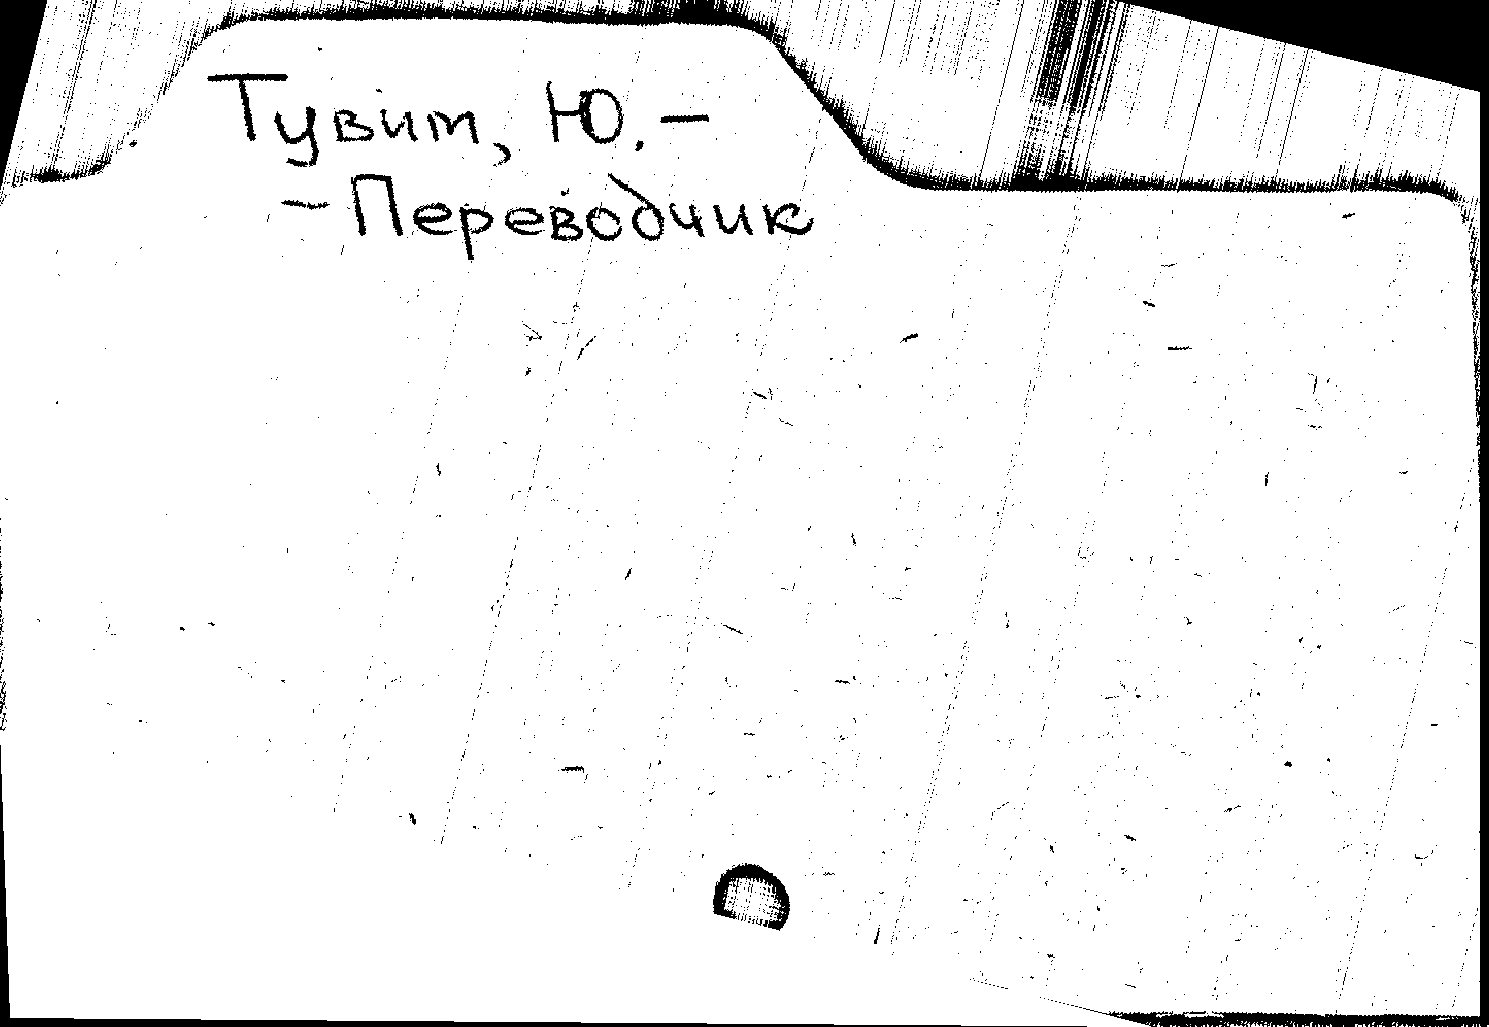 Тувим, Ю. –
– Переводчик